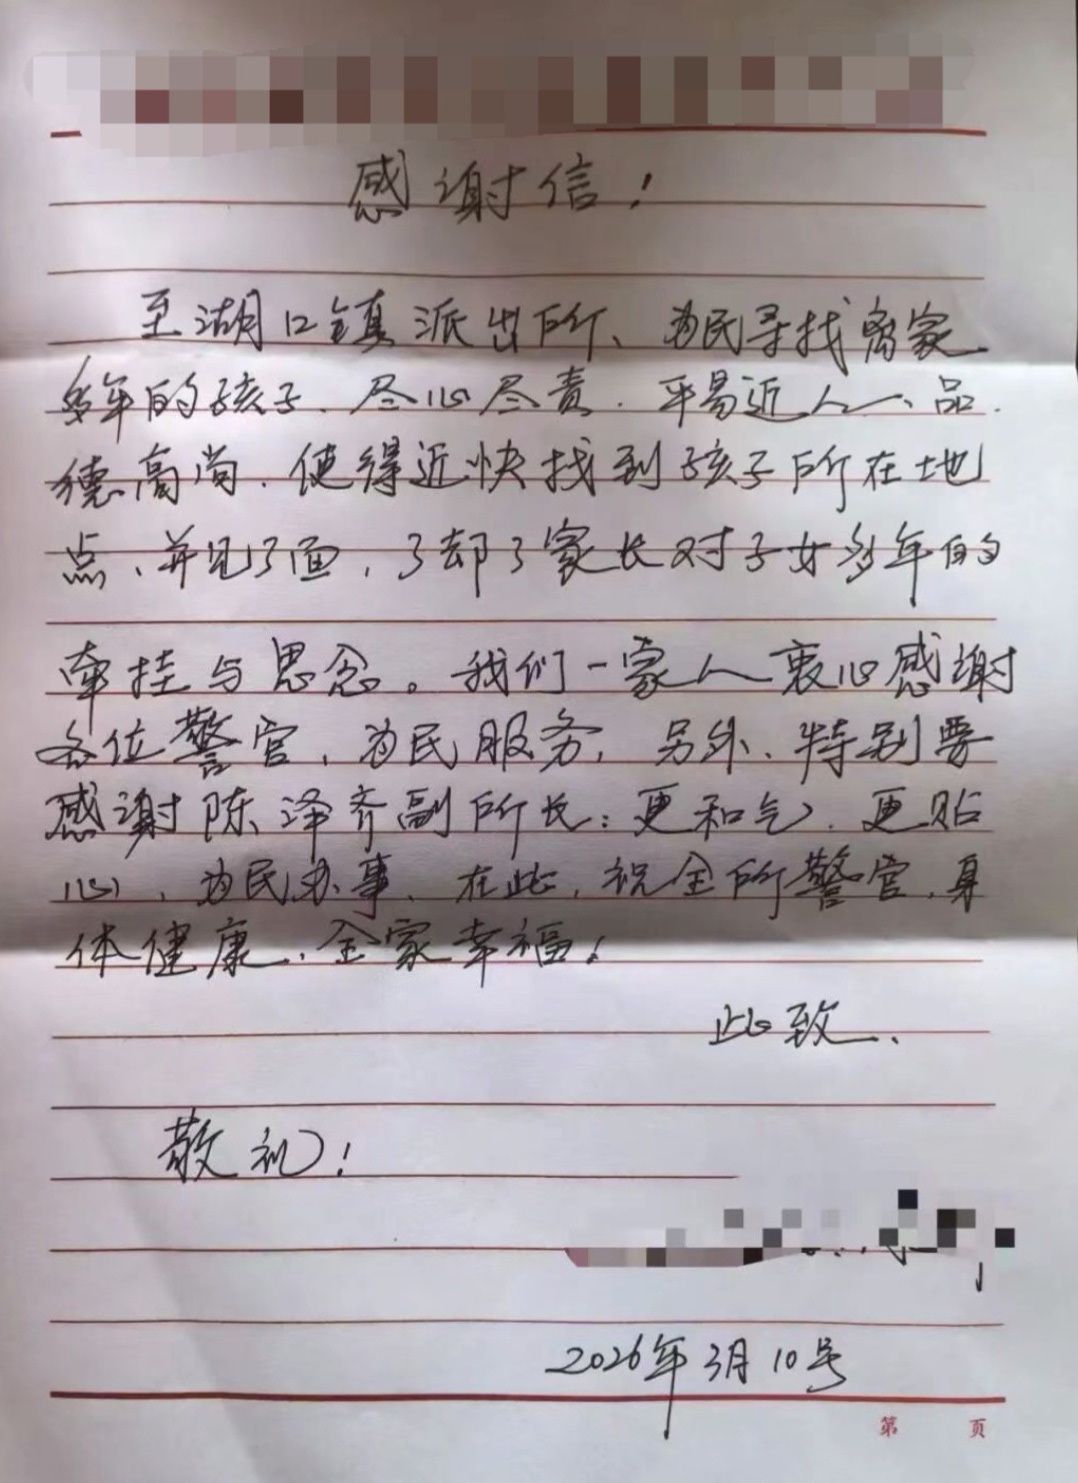 感谢信！
至湖口镇派出所、为民寻找离家
多年的孩子、尽心尽责．平易近人、品．
德高尚．使得近快找到孩子所在地
点、并见了面，了却了家长对子女多年的
牵挂与思念。我们一家人衷心感谢
各位警官，为民服务，另外、特别要
感谢陈泽齐副所长：更和气．更贴
心，为民办事、在此，祝全所警官．身
体健康、全家幸福！
此致、
敬礼！
2026年3月10号
第 页